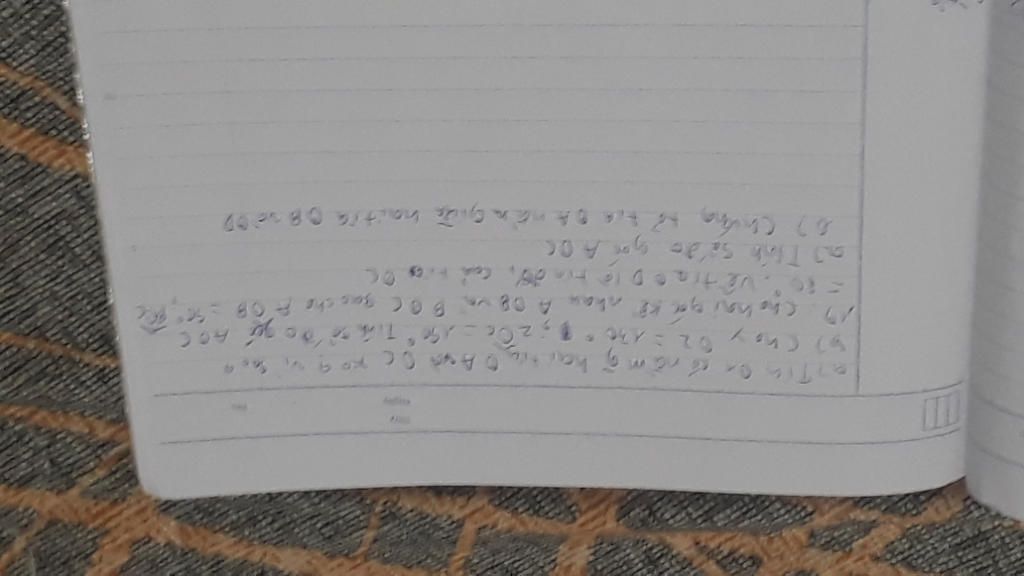 a) Tia Ox có nằm giữa hai tia OA và OC k0 ? vì sao ?
b) Cho y Oz = 130°, zOc = 150° Tính số đo góc AOC
19. Cho hai góc kề nhau AOB và BOC sao cho AOB = 50°, BOC
= 80°. Vẽ tia OD là tia đối của tia OC
a) Tính số đo góc AOC
b) Chứng tỏ tia OA nằm giữa hai tia OB và OD